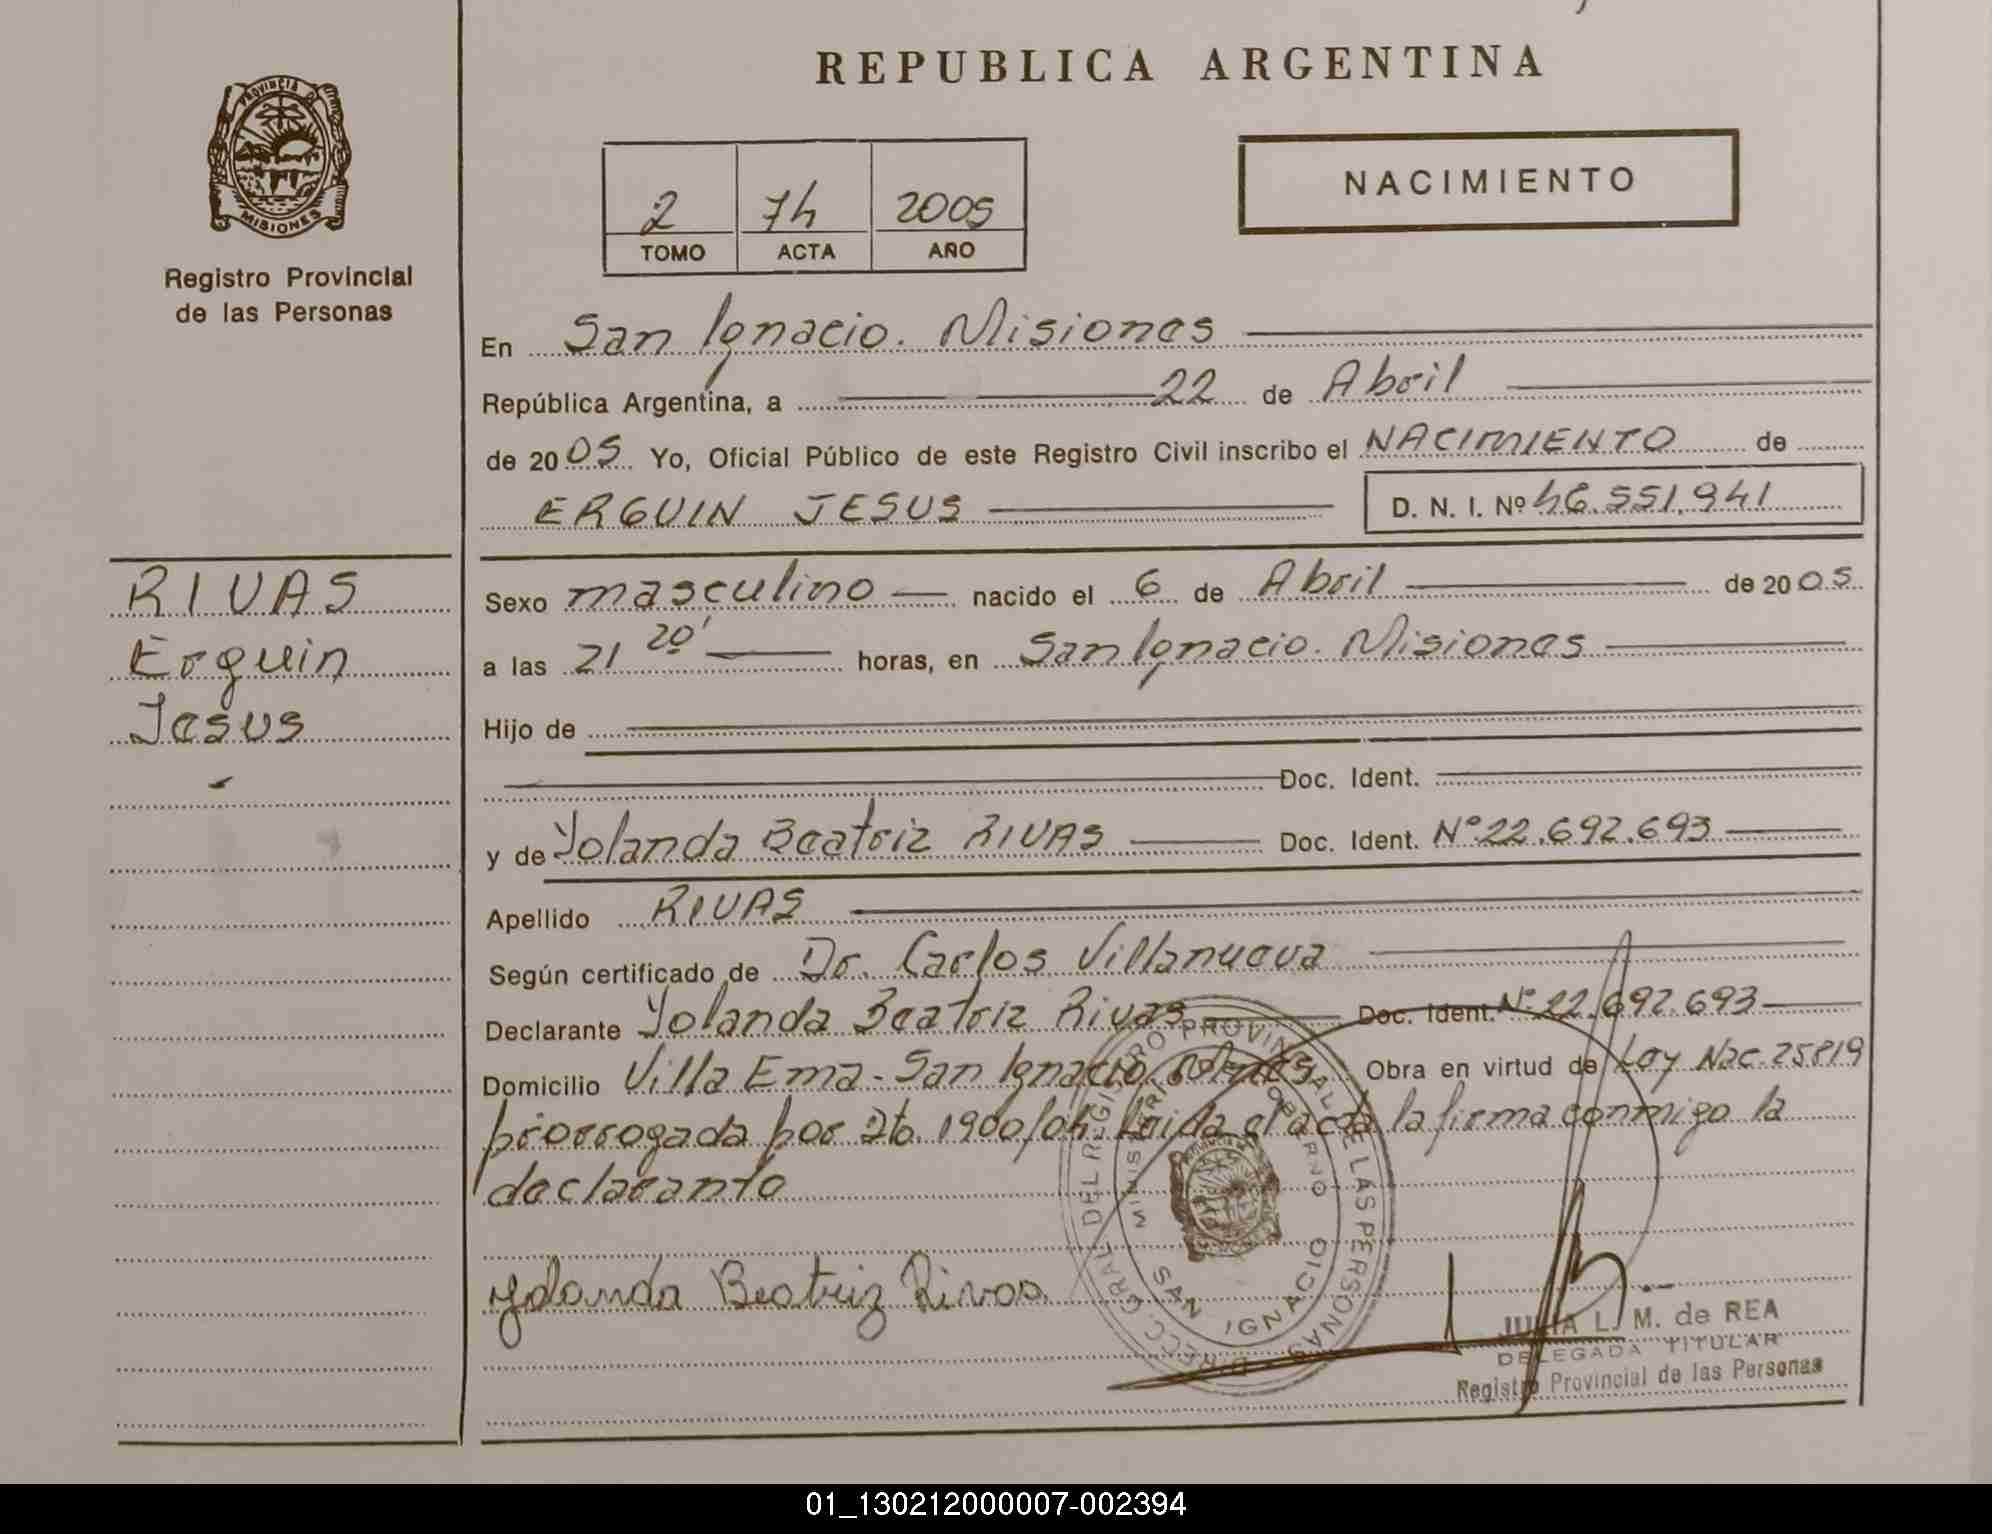 REPUBLICA ARGENTINA
PROVINCIA DE MISIONES
Registro Provincial
de las Personas
2 74 2005
TOMO ACTA AÑO
NACIMIENTO
En San Ignacio. Misiones
República Argentina, a 22 de Abril
de 2005 Yo, Oficial Público de este Registro Civil inscribo el NACIMIENTO de
ERGUIN JESUS D. N. I. Nº 46.551.941
RIVAS
Erguin
Jesus
Sexo masculino nacido el 6 de Abril de 2005
a las 21 20' horas, en San Ignacio. Misiones
Hijo de
Doc. Ident.
y de Yolanda Beatriz RIVAS Doc. Ident. Nº 22.692.693
Apellido RIVAS
Según certificado de Dr. Carlos Villanueva
Declarante Yolanda Beatriz Rivas Doc. Ident. Nº 22.692.693
Domicilio Villa Ema - San Ignacio. Mnes Obra en virtud de Ley Nac. 25819
prorrogada por Dto. 1900/04. Leida el acta la firma conmigo la
declarante
Yolanda Beatriz Rivas.
DIRECC. GRAL. DEL REGISTRO PROVINCIAL DE LAS PERSONAS
MINISTERIO DE GOBIERNO
SAN IGNACIO
JULIA L. M. de REA
DELEGADA TITULAR
Registro Provincial de las Personas
01_130212000007-002394